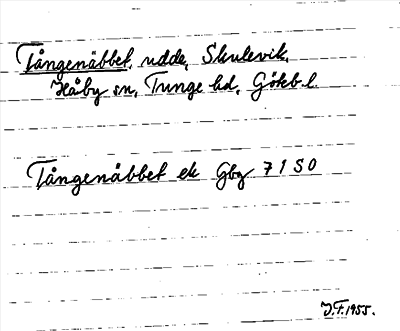 Tångenäbbet, udde, Skulevik,
Håby sn, Tunge hd, Götebl.
Tångenäbbet ek Gbg 7 1 S0
J.F. 1955.